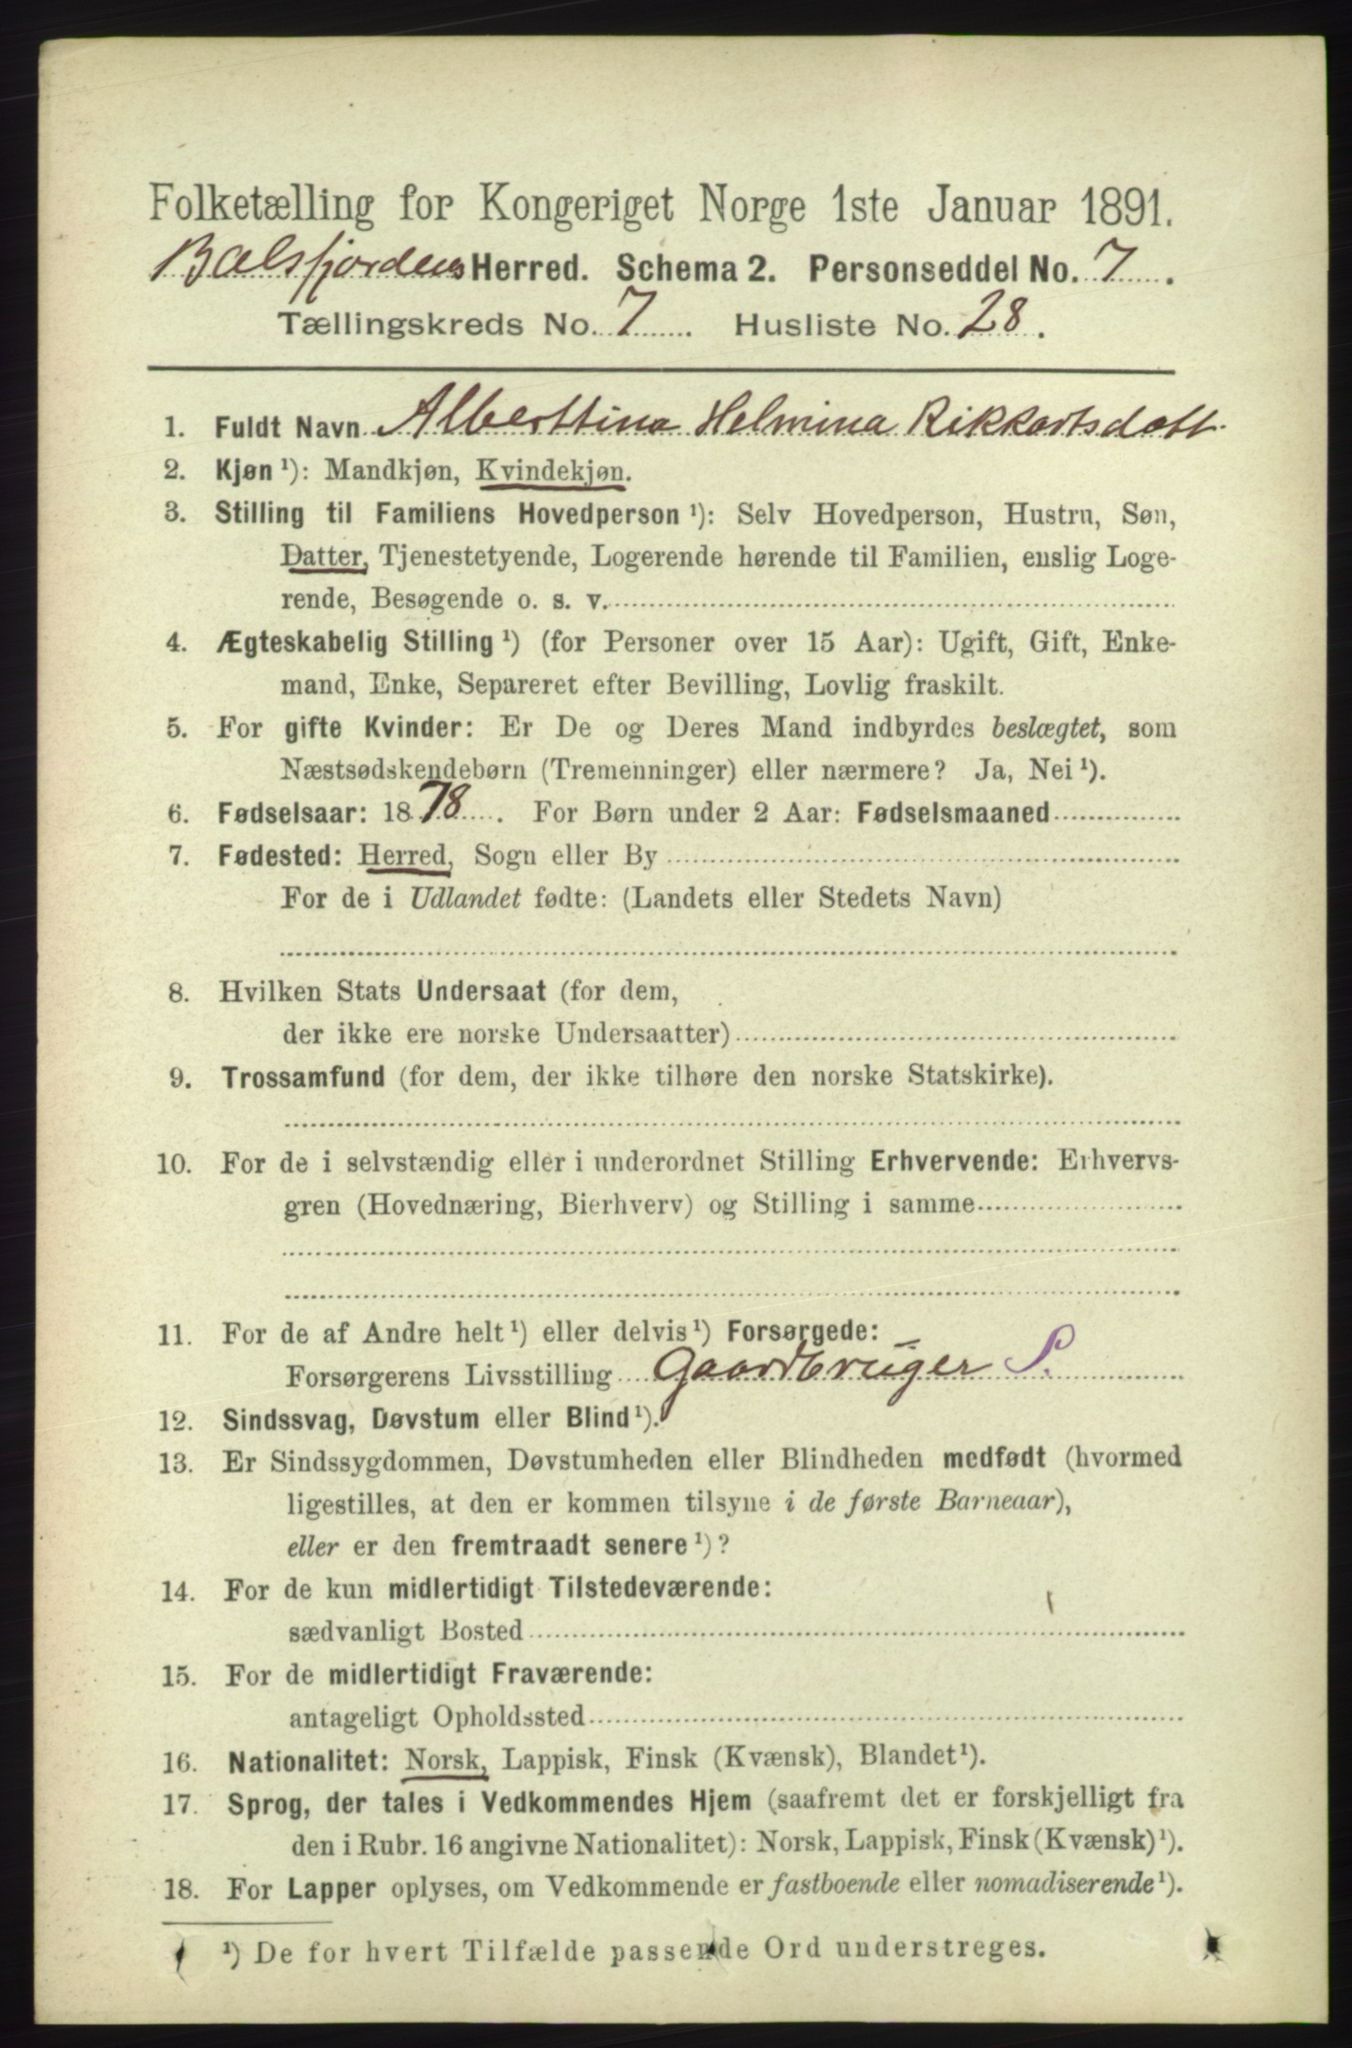 Folketælling for Kongeriget Norge 1ste Januar 1891.
Balsfjordens Herred. Schema 2. Personseddel No. 7.
Tællingskreds No. 7. Husliste No. 28.
1. Fuldt Navn Alberttina Helmina Rikkartsdatt.
2. Kjøn ¹): Mandkjøn, Kvindekjøn.
3. Stilling til Familiens Hovedperson ¹): Selv Hovedperson, Hustru, Søn,
Datter, Tjenestetyende, Logerende hørende til Familien, enslig Loge-
rende, Besøgende o. s. v.
4. Ægteskabelig Stilling ¹) (for Personer over 15 Aar): Ugift, Gift, Enke-
mand, Enke, Separeret efter Bevilling, Lovlig fraskilt.
5. For gifte Kvinder: Er De og Deres Mand indbyrdes beslægtet, som
Næstsødskendebørn (Tremenninger) eller nærmere? Ja, Nei ¹).
6. Fødselsaar: 1878. For Børn under 2 Aar: Fødselsmaaned
7. Fødested: Herred, Sogn eller By
For de i Udlandet fødte: (Landets eller Stedets Navn)
8. Hvilken Stats Undersaat (for dem,
der ikke ere norske Undersaatter)
9. Trossamfund (for dem, der ikke tilhøre den norske Statskirke).
10. For de i selvstændig eller i underordnet Stilling Erhvervende: Erhvervs-
gren (Hovednæring, Bierhverv) og Stilling i samme
11. For de af Andre helt ¹) eller delvis ¹) Forsørgede:
Forsørgerens Livsstilling Gaardbruger S.
12. Sindssvag, Døvstum eller Blind ¹).
13. Er Sindssygdommen, Døvstumheden eller Blindheden medfødt (hvormed
ligestilles, at den er kommen tilsyne i de første Barneaar),
eller er den fremtraadt senere ¹)?
14. For de kun midlertidigt Tilstedeværende:
sædvanligt Bosted
15. For de midlertidigt Fraværende:
antageligt Opholdssted
16. Nationalitet: Norsk, Lappisk, Finsk (Kvænsk), Blandet ¹).
17. Sprog, der tales i Vedkommendes Hjem (saafremt det er forskjelligt fra
den i Rubr. 16 angivne Nationalitet): Norsk, Lappisk, Finsk (Kvænsk) ¹).
18. For Lapper oplyses, om Vedkommende er fastboende eller nomadiserende ¹).
¹) De for hvert Tilfælde passende Ord understreges.